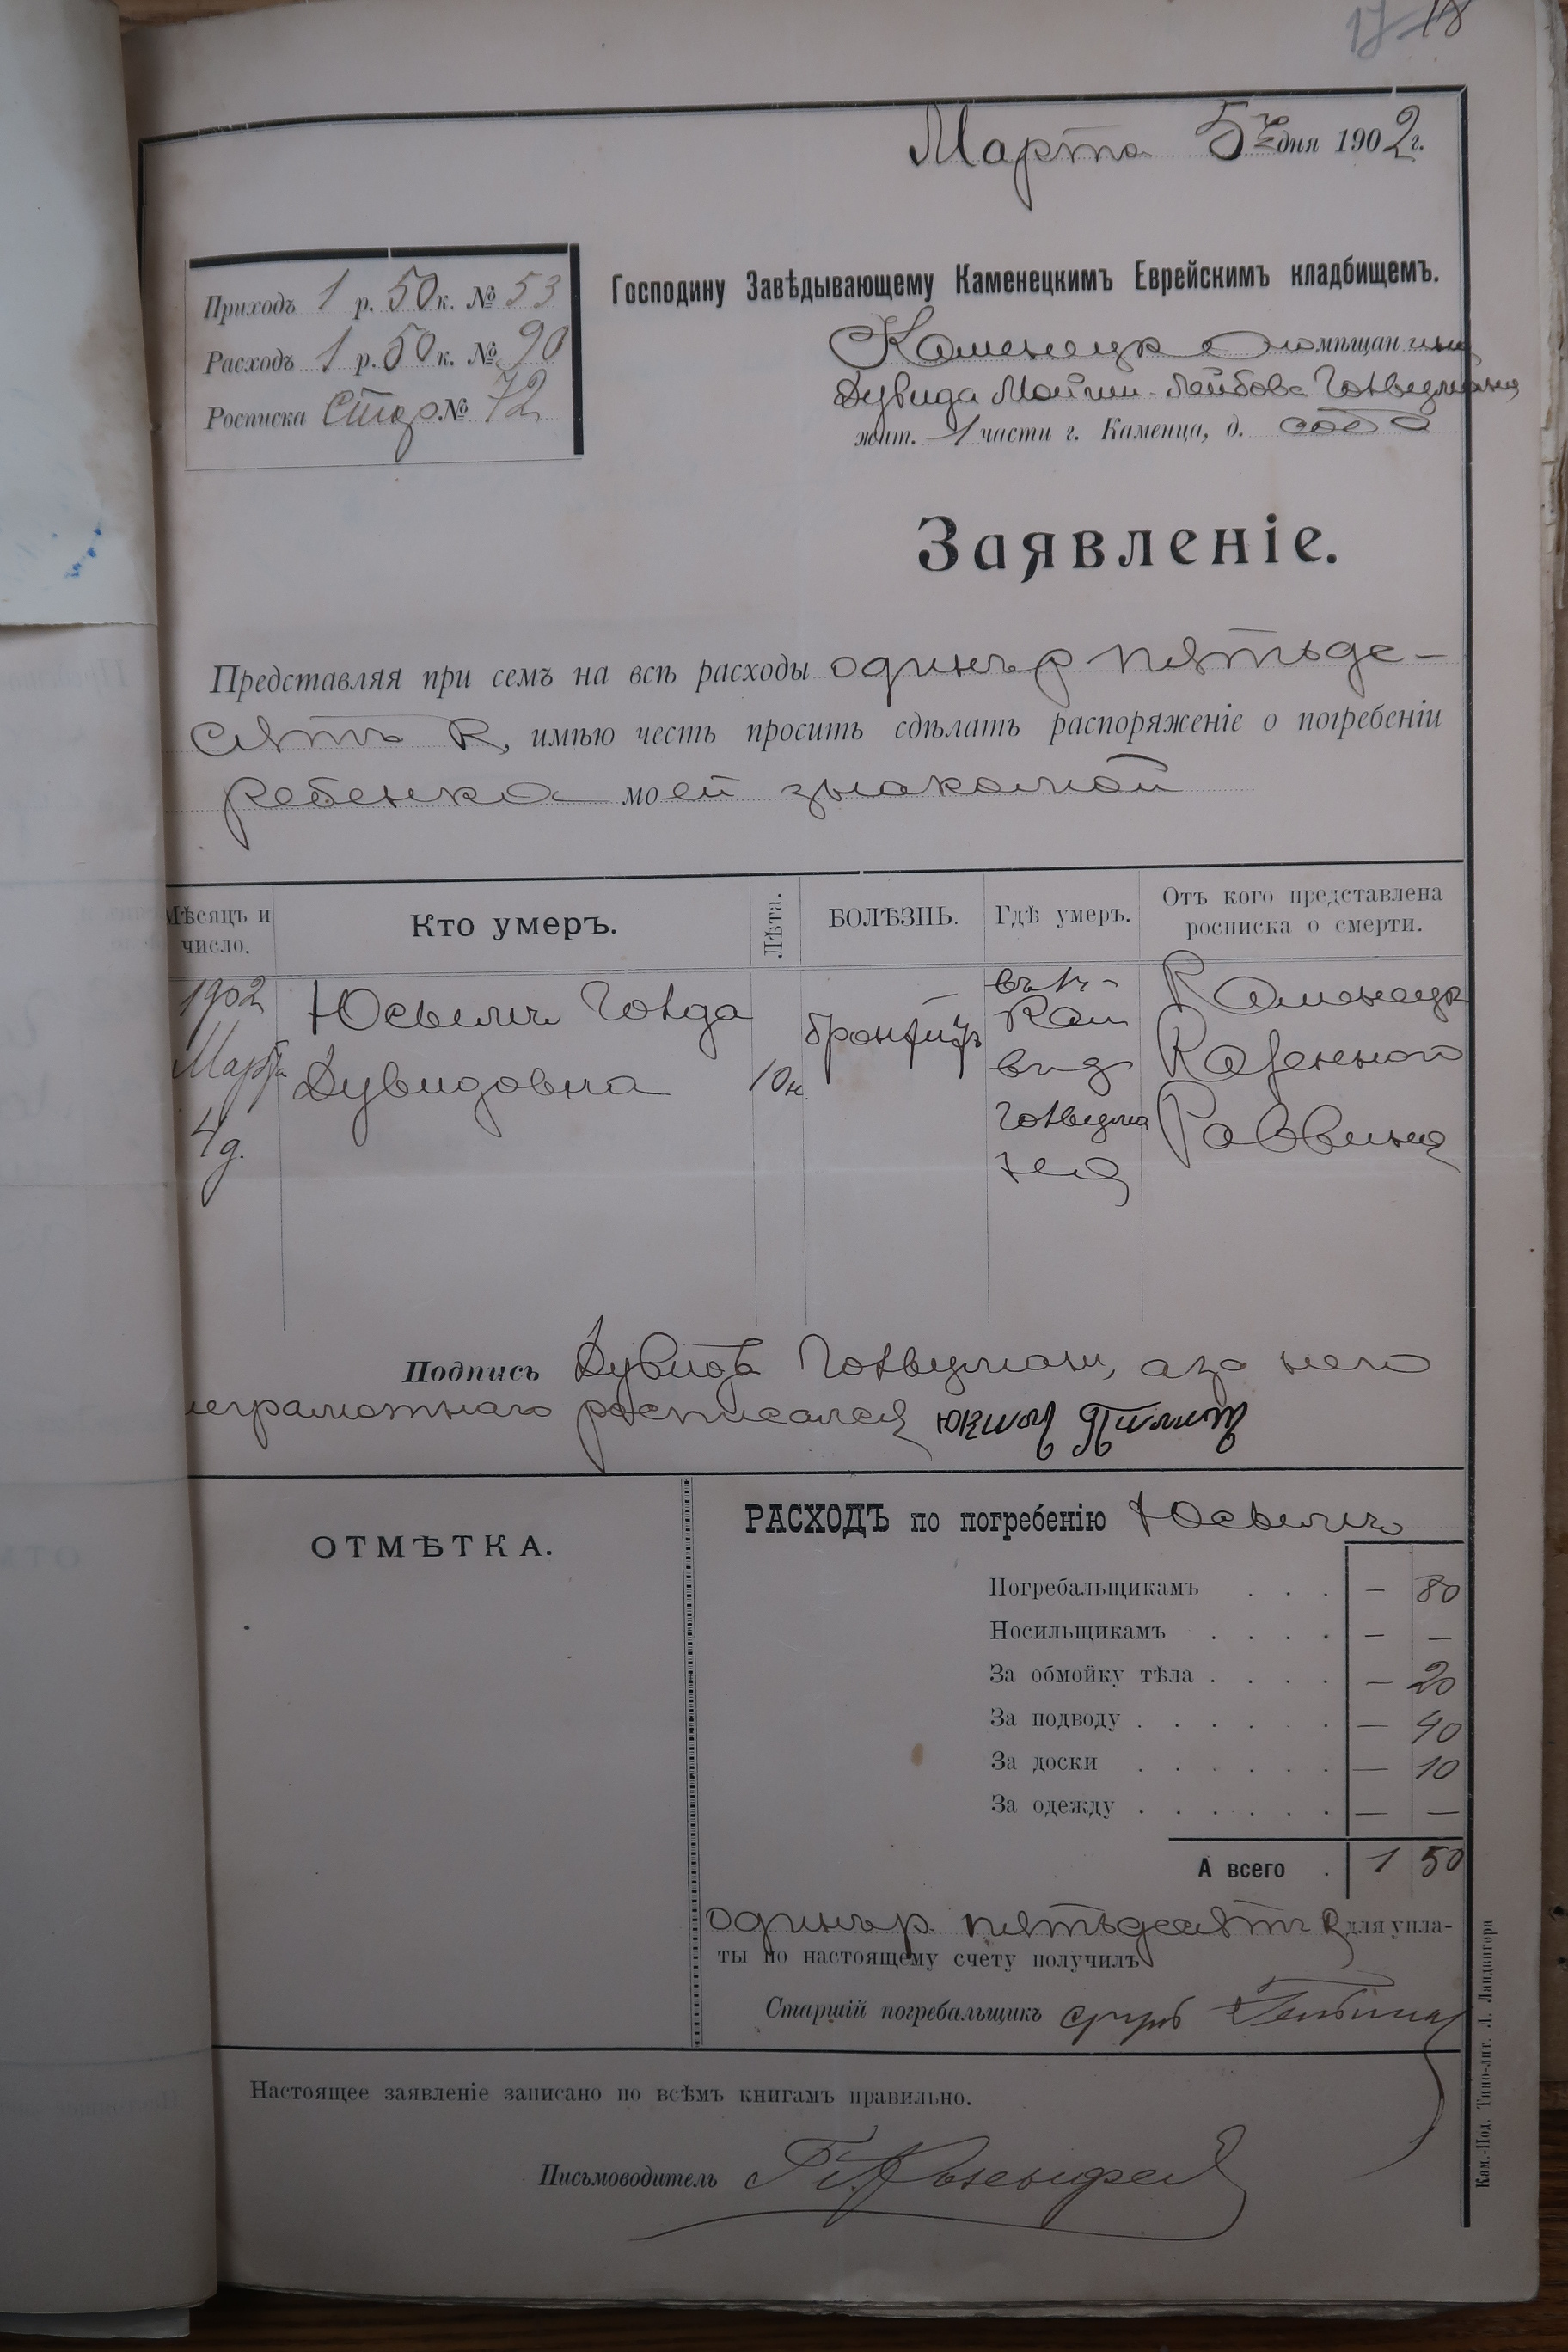 17 18
Марта 5го дня 1902 г.
Приходъ 1 р. 50 к. № 53
Расходъ 1 р. 50 к. № 90
Росписка № 72
Господину Завѣдывающему Каменецкимъ Еврейскимъ кладбищемъ.
Каменецкаго мѣщанина
Дувида Лейбова
жит. 1 части г. Каменца, д. собс
Заявленіе.
Представляя при семъ на всѣ расходы одинъ р пятьде-
сятъ к, имѣю честь просить сдѣлать распоряженіе о погребеніи
ребенка моей знакомой
Мѣсяцъ и число.
Кто умеръ.
Лѣта.
БОЛѢЗНЬ.
Гдѣ умеръ.
Отъ кого представлена росписка о смерти.
1902
Марта
4 д.
Юсьемъ Голда
Дувидовна
10 н.
бронхитъ
въ г.
Кам
в д
Каменецк
Казеннаго
Раввина
Подпись Дувидъ, а за него
неграмотнаго росписался
ОТМѢТКА.
РАСХОДЪ по погребенію
Погребальщикамъ . . . — 80
Носильщикамъ . . . . — —
За обмойку тѣла . . . . — 20
За подводу . . . . . . — 40
За доски . . . . . . — 10
За одежду . . . . . . — —
А всего . 1 50
одинъ р. пятьдесятъ к для упла-
ты по настоящему счету получилъ
Старшій погребальщикъ
Настоящее заявленіе записано по всѣмъ книгамъ правильно.
Письмоводитель
Кам.-Под. Типо-лит. Л. Ландвигера